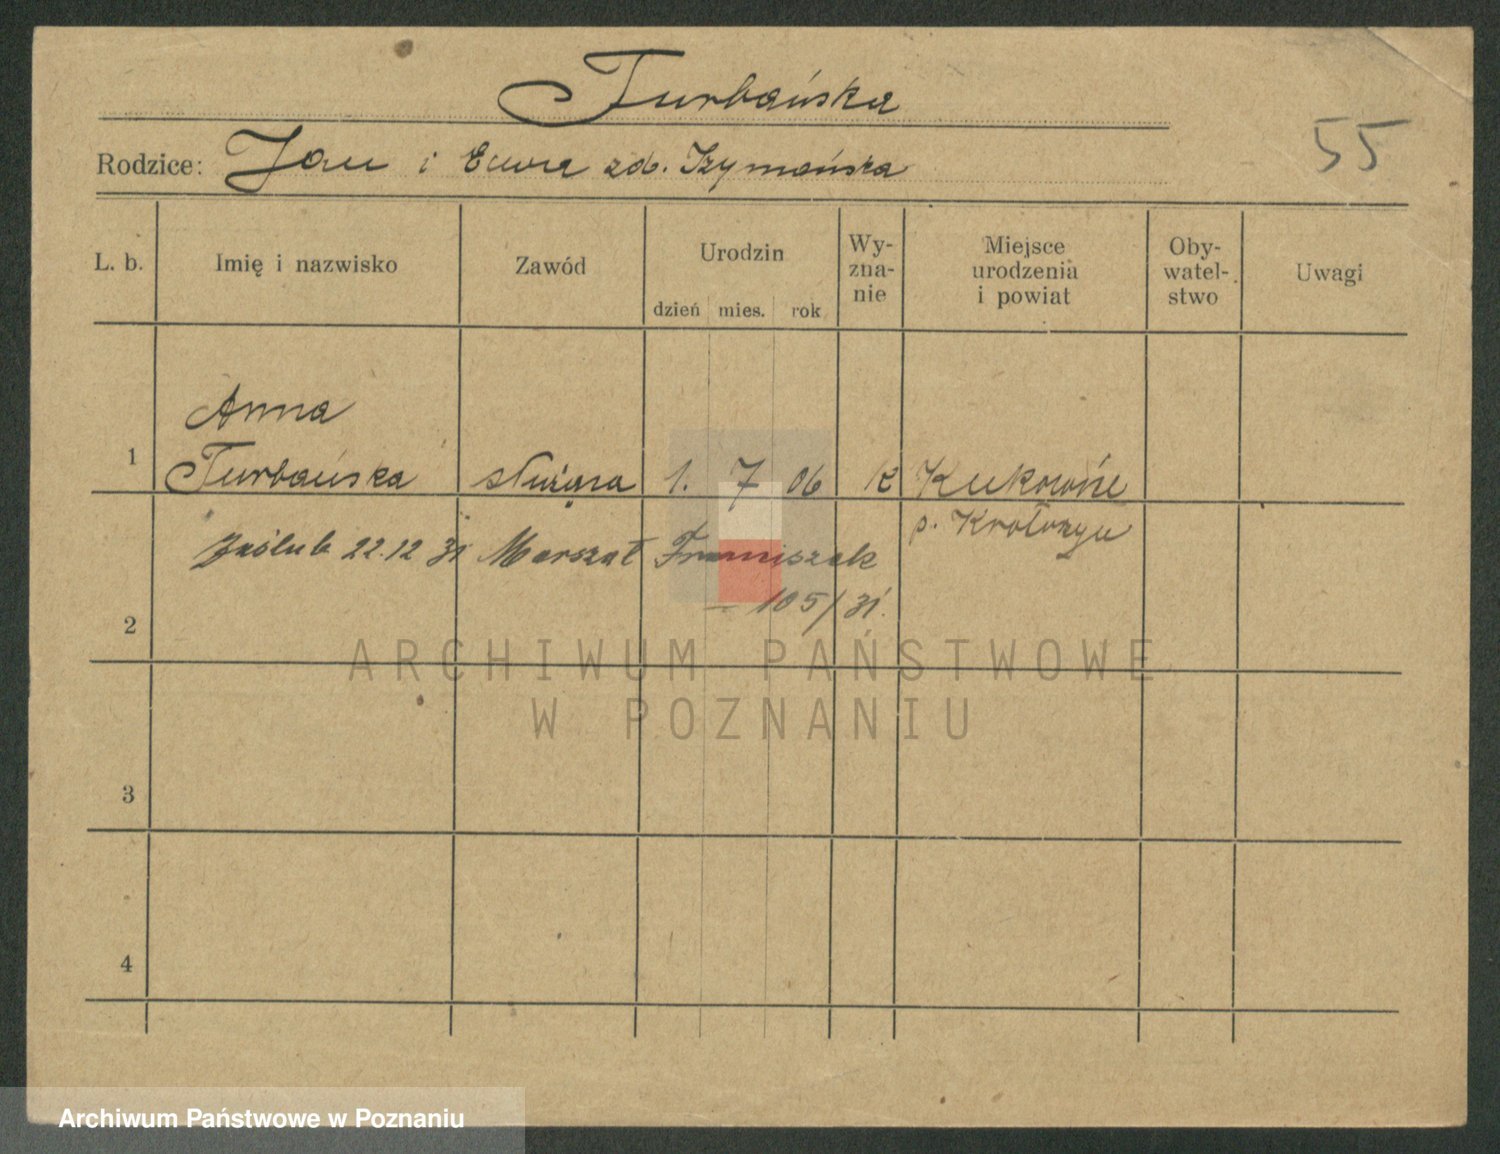 Turbańska
55
Rodzice: Jan i Ewa zd. Szymańska
L. b. Imię i nazwisko Zawód Urodzin dzień mies. rok Wyznanie Miejsce urodzenia i powiat Obywatelstwo Uwagi
Anna
1 Turbańska służąca 1. 7 06 k
p. Krotoszyn
zaślub 22.12 31 Marszał Franciszek
2 – 105/31.
ARCHIWUM PAŃSTWOWE
W POZNANIU
3
4
Archiwum Państwowe w Poznaniu